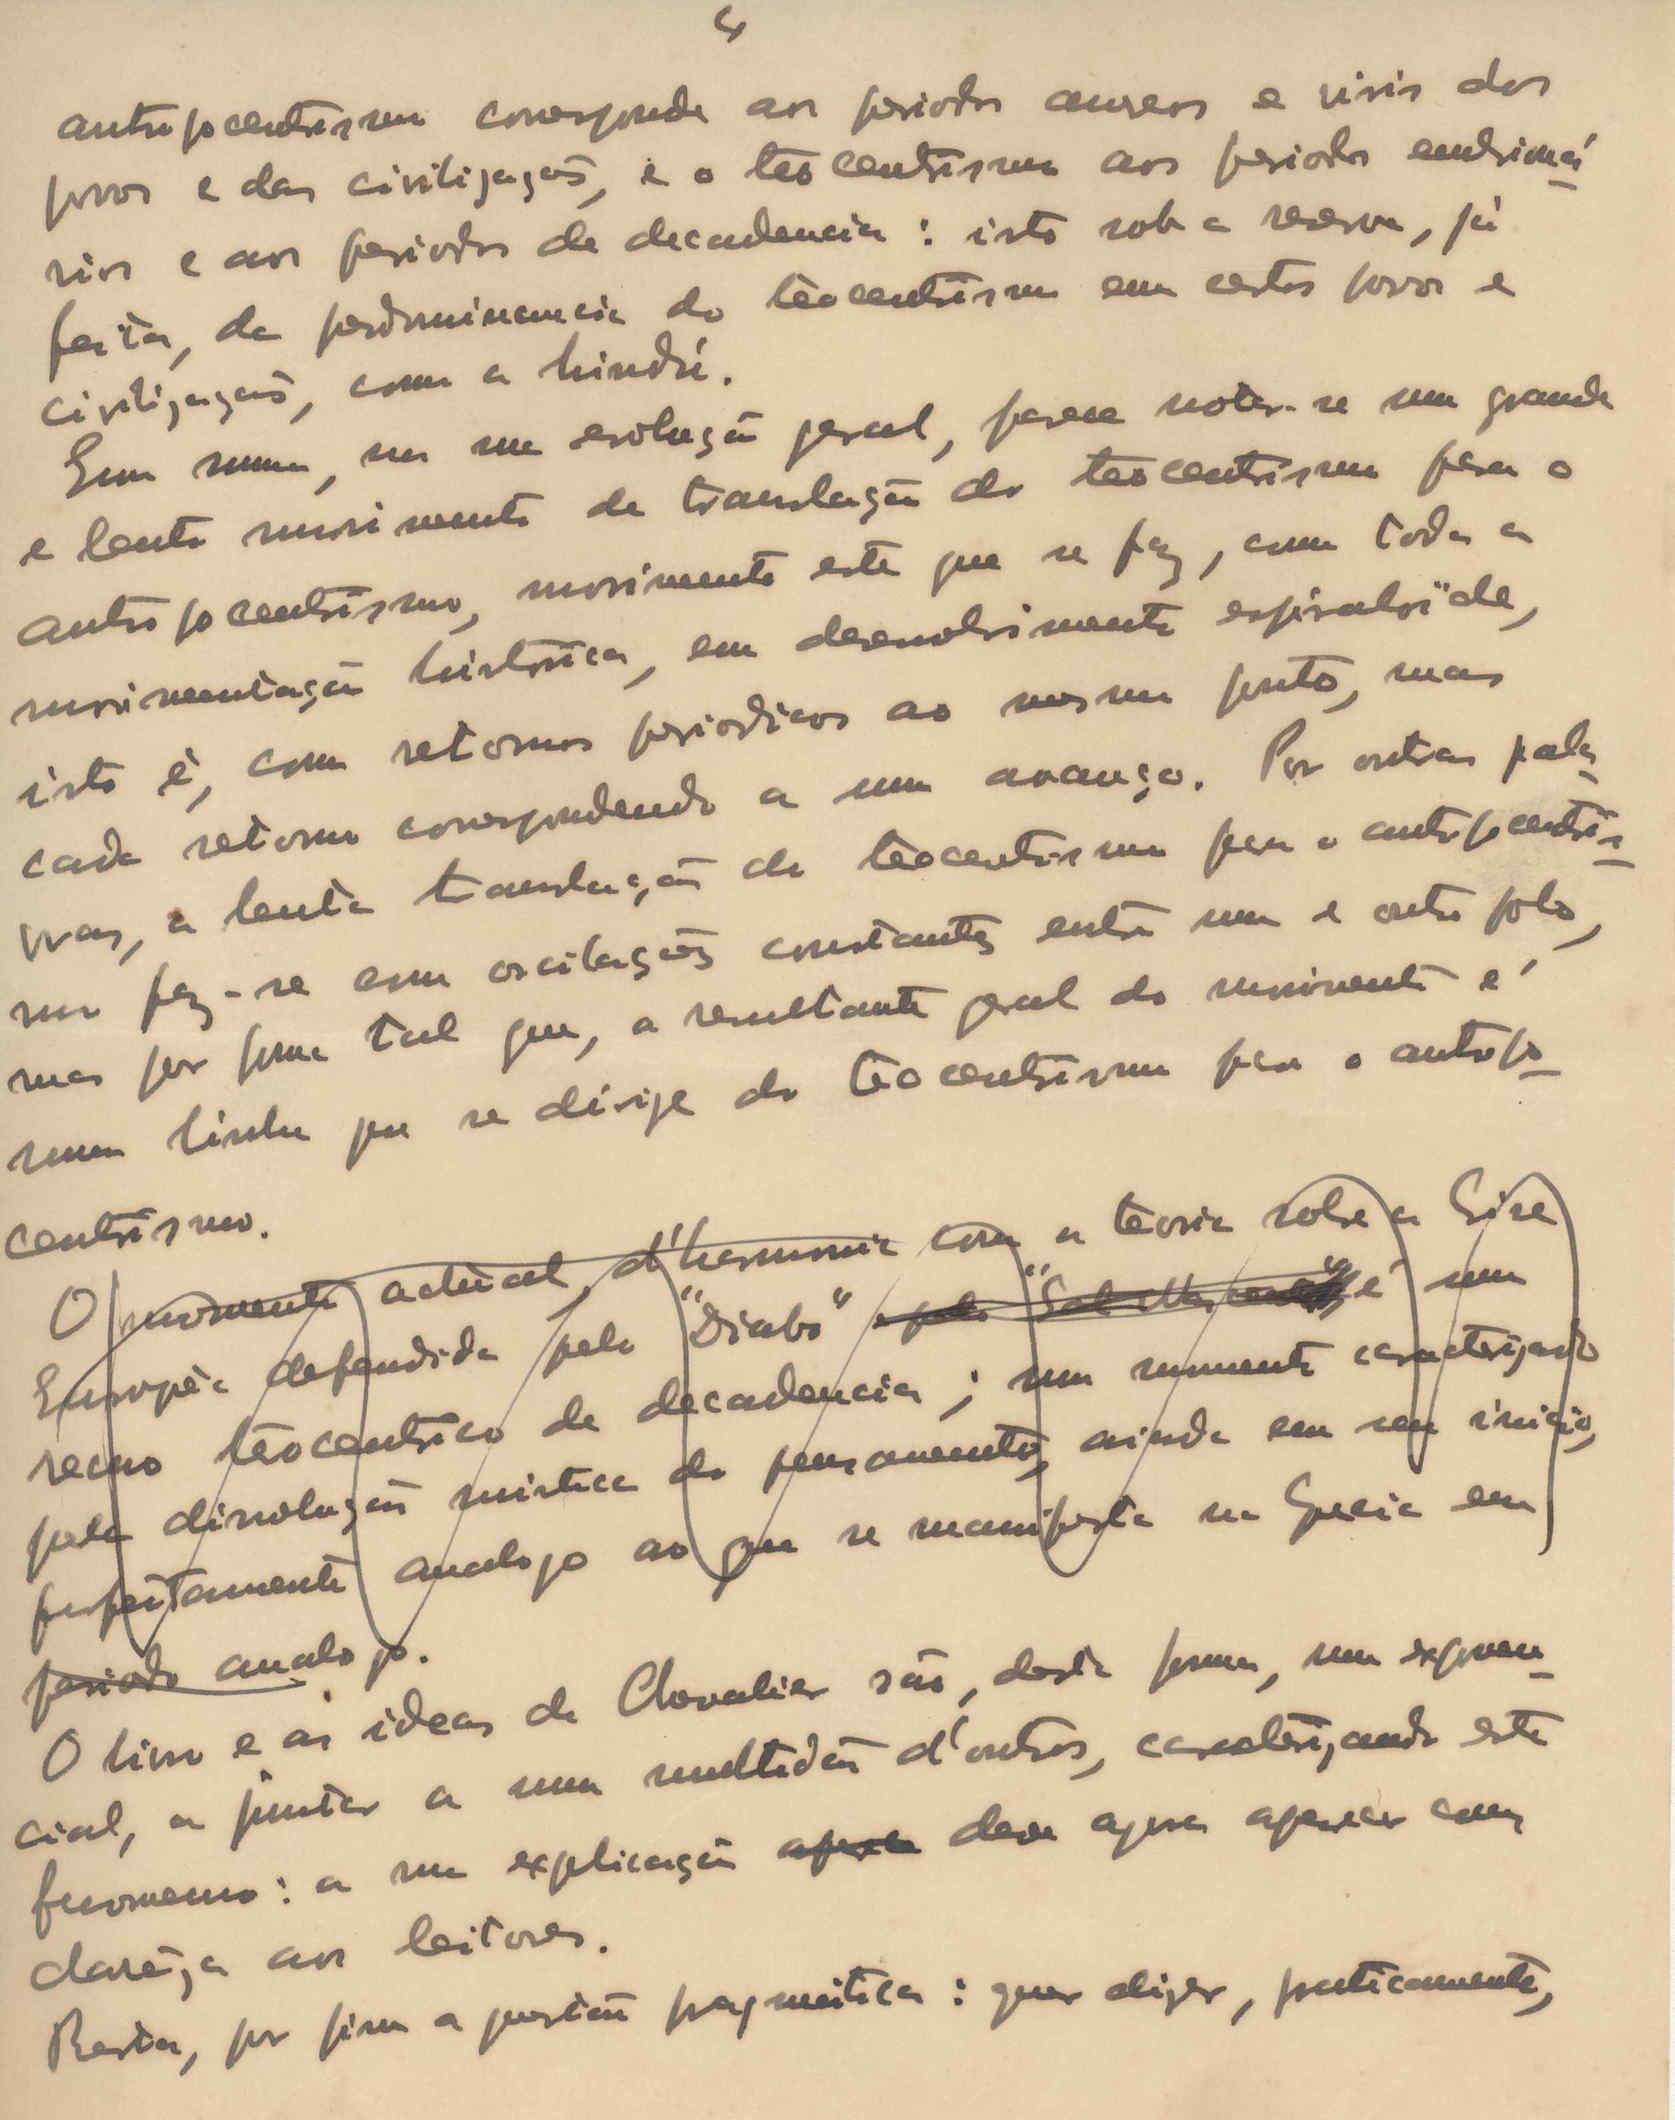 4
antropocentrismo corresponde aos periodos aureos e viris dos
povos e das civilizações, e o teocentrismo aos periodos embrioná-
rios e aos periodos de decadencia: isto sob a reserva, já
feita, da predominancia do teocentrismo em certos povos e
civilizações, como a hindú.
Em suma, na sua evolução geral, parece notar-se um grande
e lento movimento de translação do teocentrismo para o
antropocentrismo, movimento este que se faz, como toda a
movimentação historica, em desenvolvimento espiraloïde,
isto é, com retornos periodicos ao mesmo ponto, mas
cada retorno correspondendo a um avanço. Por outras pala-
vras, a lenta translação do teocentrismo para o antropocentris-
mo faz-se com oscilações constantes entre um e outro polo,
mas por forma tal que, a resultante geral do movimento é
uma linha que se dirige do teocentrismo para o antropo-
centrismo.
O momento actual, d'harmonia com a teoria sobre a Crise
Europeia defendida pelo "Diabo" e pelo "Sol Nascente", é um
recuo teocentrico de decadencia; um momento caracterizado
pela dissolução mistica do pensamento, ainda em seu inicio,
perfeitamente analogo ao que se manifesta na Grecia em
periodo analogo.
O livro e as ideas de Chevalier são, desta forma, um exponen-
cial, a juntar a uma multidão d'outros, caracterizando este
fenomeno: a sua explicação deve agora aparecer com
clareza aos leitores.
Resta, por fim a questão pragmática: quer dizer, praticamente,